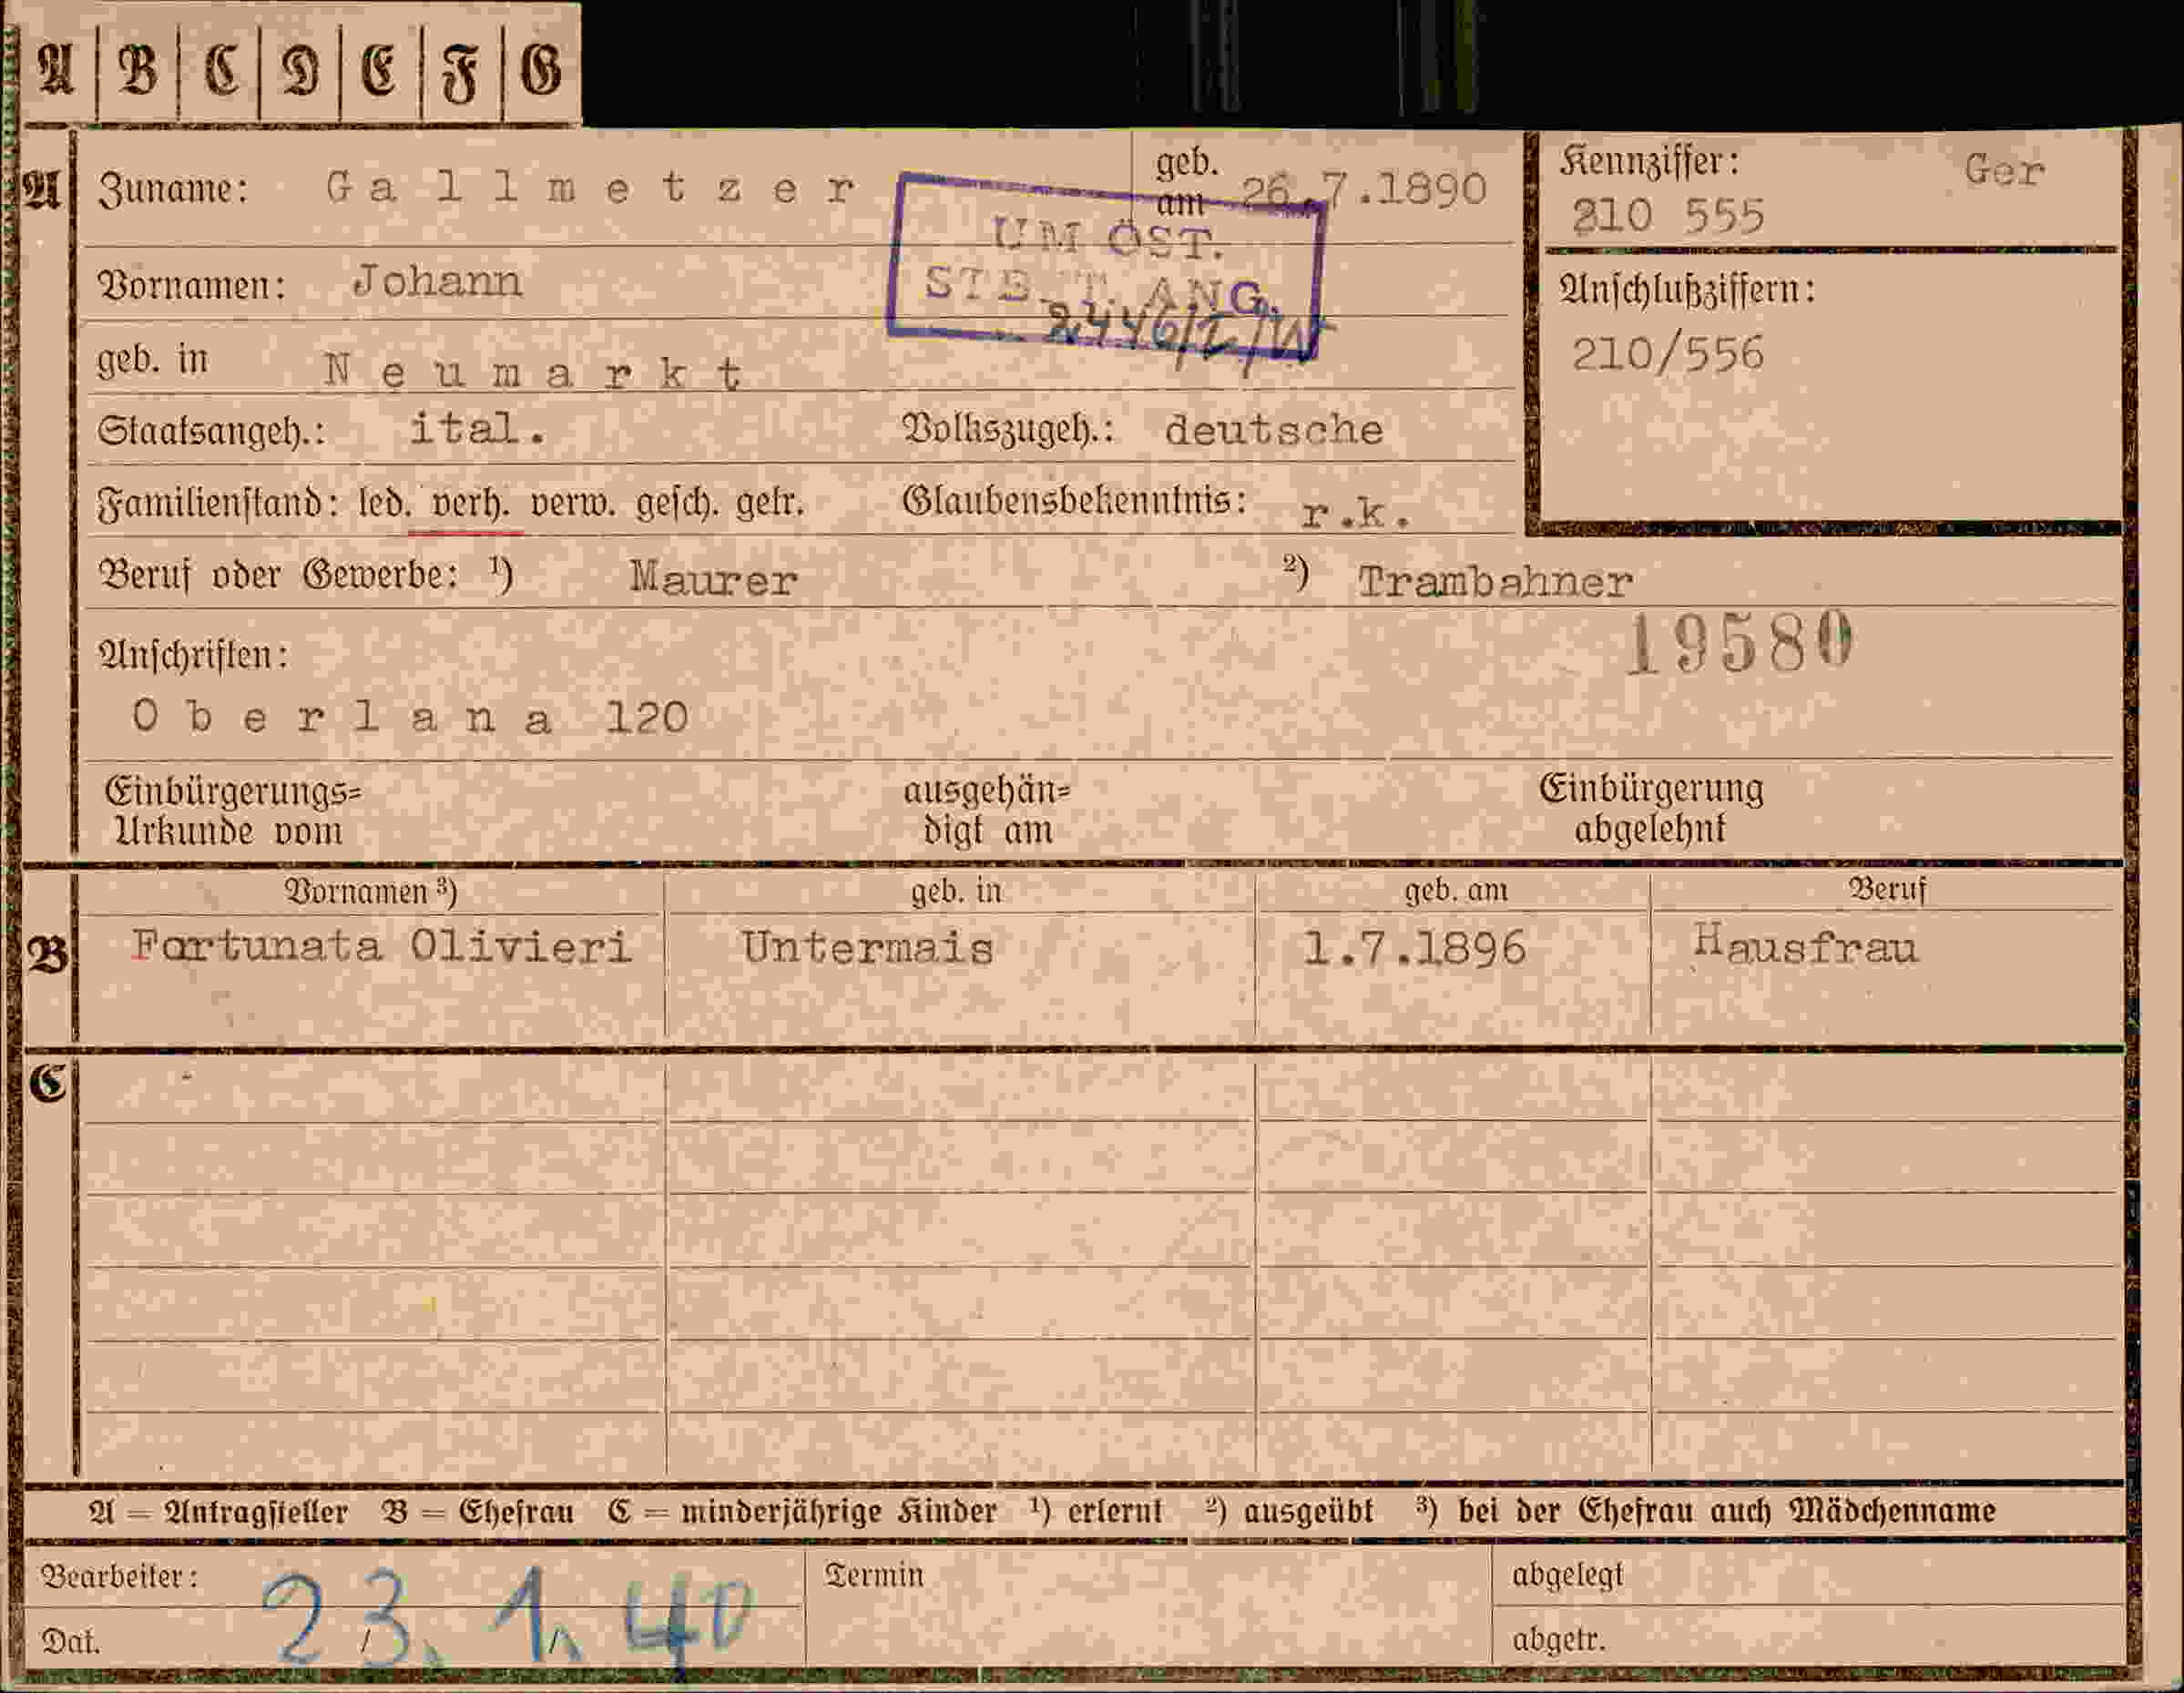 A B C D E F G
A Zuname: Gallmetzer geb. am 26.7.1890
Kennziffer: Ger
210 555
UM ÖST.
STB. T. ANG.
2446/2/W
Vornamen: Johann
Anschlußziffern:
210/556
geb. in Neumarkt
Staatsangeh.: ital. Volkszugeh.: deutsche
Familienstand: led. verh. verw. gesch. getr. Glaubensbekenntnis: r.k.
Beruf oder Gewerbe: ¹) Maurer ²) Trambahner
19580
Anschriften:
Oberlana 120
Einbürgerungs= ausgehän= Einbürgerung
Urkunde vom digt am abgelehnt
Vornamen ³) geb. in geb. am Beruf
B Fortunata Olivieri Untermais 1.7.1896 Hausfrau
C
A = Antragsteller B = Ehefrau C = minderjährige Kinder ¹) erlernt ²) ausgeübt ³) bei der Ehefrau auch Mädchenname
Bearbeiter: Termin abgelegt
Dat. 23. 1. 40 abgetr.